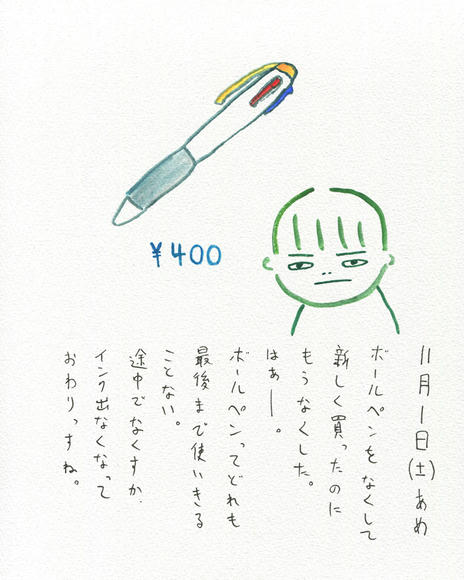 ¥400
11月1日(土)あめ
ボールペンをなくして
新しく買ったのに
もうなくした。
はぁー。
ボールペンってどれも
最後まで使いきる
ことない。
途中でなくすか、
インク出なくなって
おわりっすね。